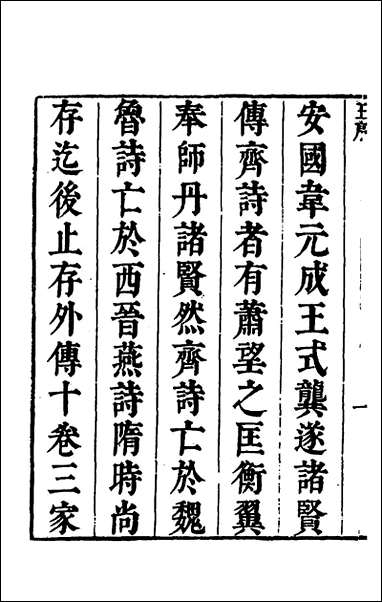 安國韋元成王式龔遂諸賢
傳齊詩者有蕭望之匡衡翼
奉師丹諸賢然齊詩亡於魏
魯詩亡於西晉燕詩隋時尚
存迄後止存外傳十卷三家